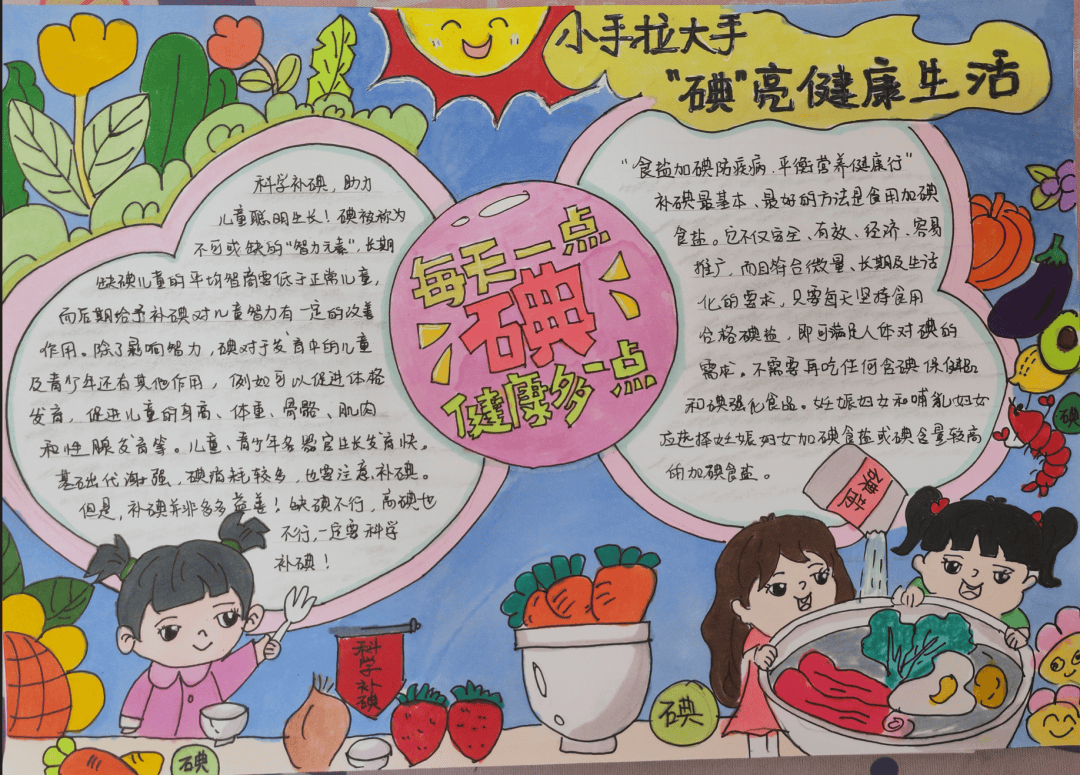 小手拉大手
"碘"亮健康生活
科学补碘，助力
儿童聪明生长！碘被称为
不可或缺的"智力元素"，长期
缺碘儿童的平均智商要低于正常儿童，
而后期给予补碘对儿童智力有一定的改善
作用。除了影响智力，碘对于发育中的儿童
及青少年还有其他作用，例如可以促进体格
发育，促进儿童的身高、体重、骨骼、肌肉
和性腺发育等。儿童、青少年各器官生长发育快。
基础代谢强，碘消耗较多，也要注意补碘。
但是，补碘并非多多益善！缺碘不行，高碘也
不行，一定要科学
补碘！
每天一点
碘
健康多一点
"食盐加碘防疾病，平衡营养健康行"
补碘最基本、最好的方法是食用加碘
食盐。它不仅安全、有效、经济、容易
推广，而且符合微量、长期及生活
化的需求，只要每天坚持食用
合格碘盐，即可满足人体对碘的
需求。不需要再吃任何含碘保健品
和碘强化食品。妊娠妇女和哺乳妇女
应选择妊娠妇女加碘食盐或碘含量较高
的加碘食盐。
碘盐
碘
科学补碘
碘
碘